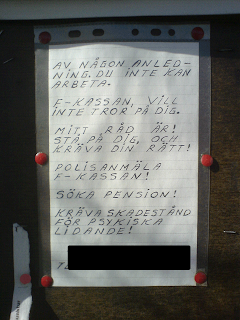 AV NÅGON ANLED-
NING. DU INTE KAN
ARBETA.
F-KASSAN, VILL
INTE TROR PÅ DIG.
MITT RÅD ÄR!
STÅ PÅ DIG, OCH
KRÄVA DIN RÄTT!
POLISANMÄLA
F-KASSAN!
SÖKA PENSION!
KRÄVA SKADESTÅND
FÖR PSYKISKA
LIDANDE!
T.